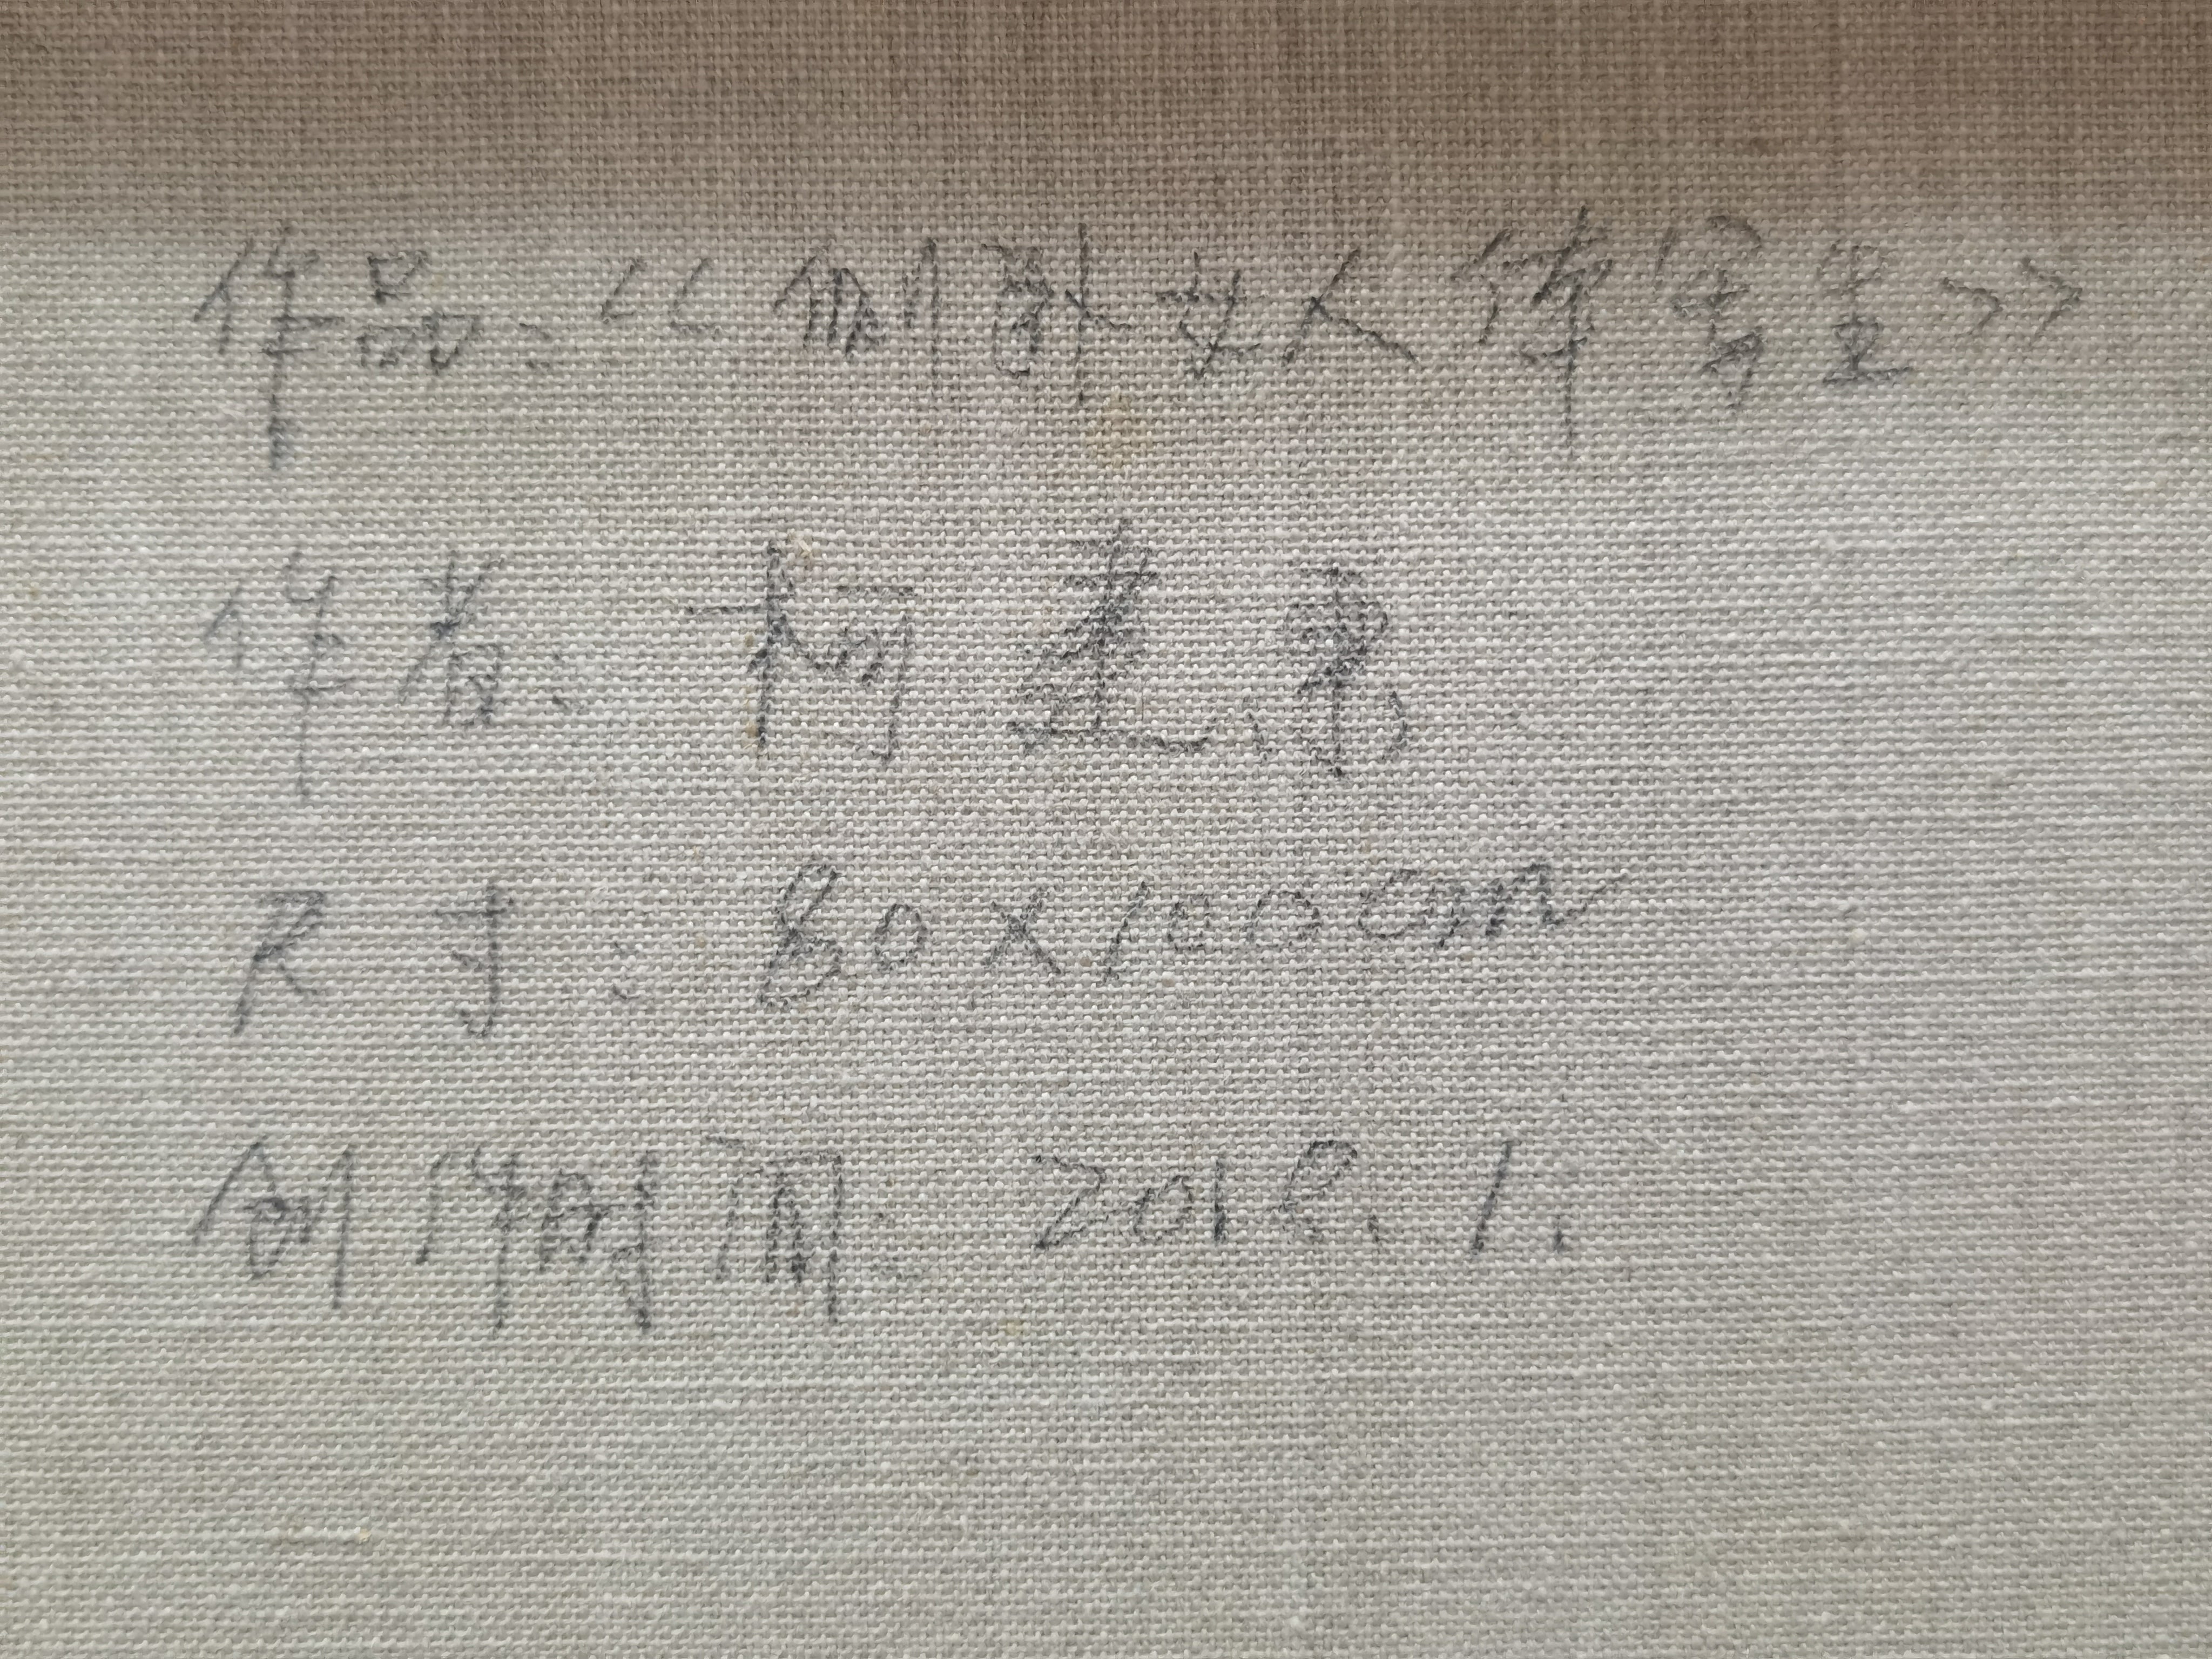 作品：《侧卧女人体写生》
作者：柯
尺寸：80×100cm
创作时间：2018.1.